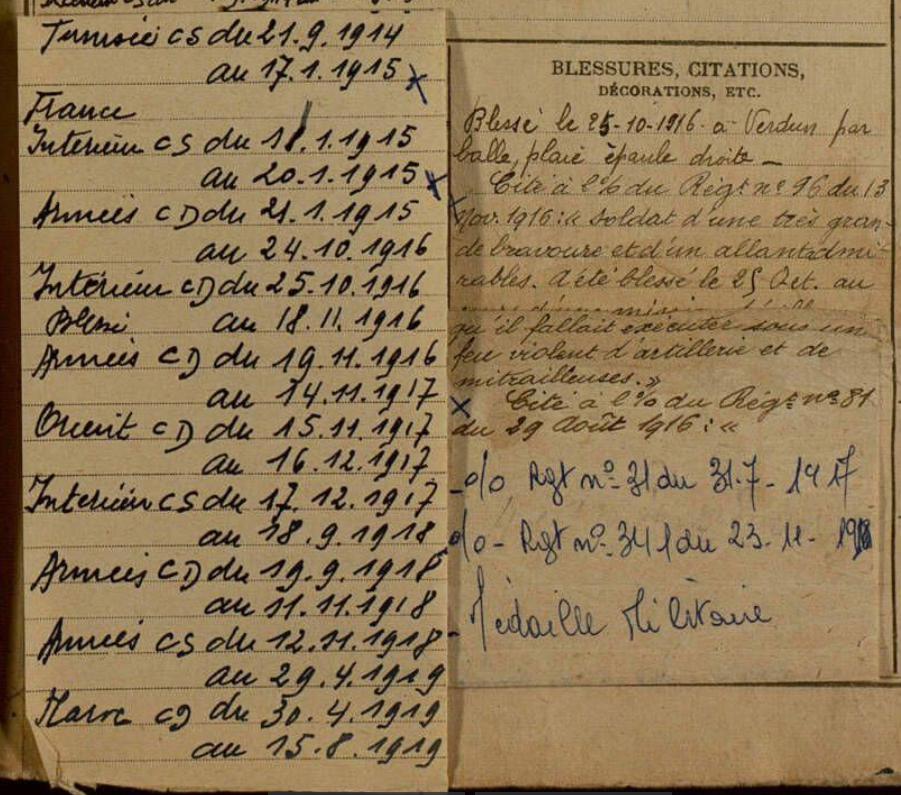 Tunisie CS du 21.9.1914
au 17.1.1915 x
France
Intérieur CS du 18.1.1915
au 20.1.1915 x
Armées CD du 21.1.1915
au 24.10.1916
Intérieur CD du 25.10.1916
Blessé au 18.11.1916
Armées CD du 19.11.1916
au 14.11.1917
Orient CD du 15.11.1917
au 16.12.1917
Intérieur CS du 17.12.1917
au 18.9.1918
Armées CD du 19.9.1918
au 11.11.1918
Armées CS du 12.11.1918
au 29.4.1919
Maroc CD du 30.4.1919
au 15.8.1919
BLESSURES, CITATIONS,
DÉCORATIONS, ETC.
Blessé le 25-10-1916 à Verdun par
balle, plaie épaule droite -
Cité à l'% du Régt nº 96 du 13
Nov. 1916 : « Soldat d'une très gran-
de bravoure et d'un allant admi-
rables. A été blessé le 25 Oct. au
mission
qu'il fallait exécuter sous un
feu violent d'artillerie et de
mitrailleuses. »
x Cité à l'% du Régt nº 81
du 29 Août 1916 : «
- o/o Rgt nº 31 du 31-7-1917
o/o - Rgt nº 341 du 23-11-1918
- Médaille Militaire